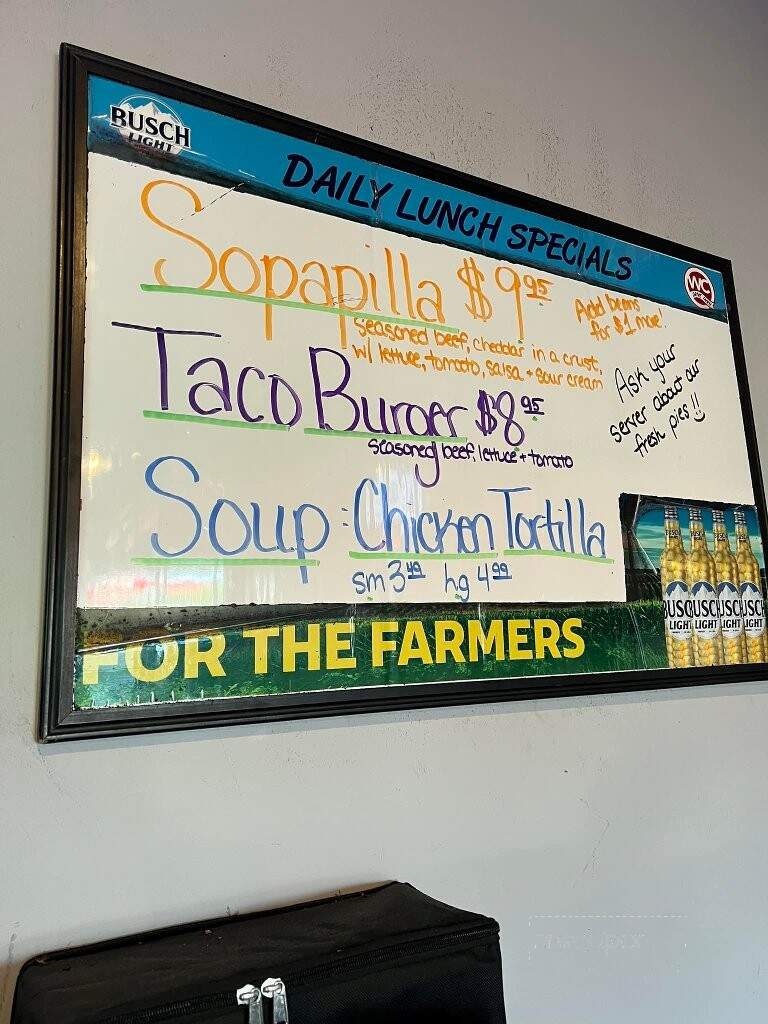 BUSCH
LIGHT
DAILY LUNCH SPECIALS
WC
Sopapilla $9.95
Add beans
for $1 more!
seasoned beef, cheddar in a crust,
w/ lettuce, tomato, salsa + sour cream
Taco Burger $8.95
seasoned beef, lettuce + tomato
Ask your
server about our
fresh pies!!
Soup: Chicken Tortilla
sm 3.49 lg 4.99
FOR THE FARMERS
BUSCH LIGHT
BUSCH LIGHT
BUSCH LIGHT
BUSCH LIGHT